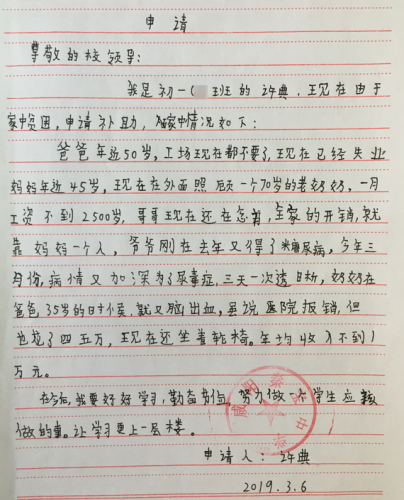 申请
尊敬的校领导:
我是初一( 班的许典,现在由于
家中贫困,申请补助,家中情况如下:
爸爸年近50岁,工场现在都不要了,现在已经失业
妈妈年近45岁,现在在外面照顾一个70岁的老奶奶,一月
工资不到2500岁,哥哥现在还在念书,全家的开销,就
靠妈妈一个人,爷爷刚在去年又得了糖尿病,今年三
月份,病情又加深为了尿毒症,三天一次透析,奶奶在
爸爸35岁的时候就又脑出血,虽说医院报销,但
也花了四五万,现在还坐着轮椅。年均收入不到1
万元。
在今后,我要好好学习,勤奋节俭,努力做一个学生应该
做的事。让学习更上一层楼。
咸阳秦 中
申请人:许典
2019.3.6